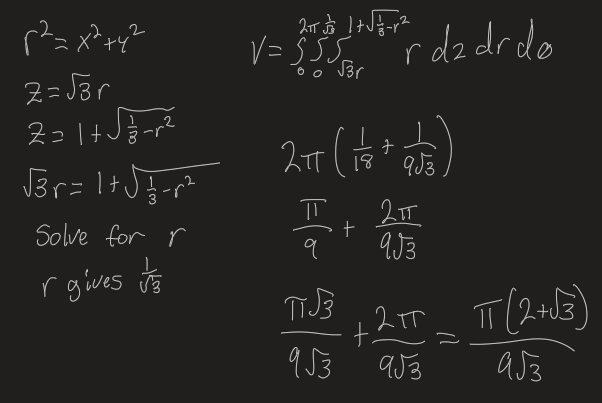 r² = x² + y²
z = √3 r
z = 1 + √(1/3 - r²)
√3 r = 1 + √(1/3 - r²)
Solve for r
r gives 1/√3
V = ∫₀^2π ∫₀^1/3 ∫_√3r^1+√(1/3 - r²) r dz dr dθ
2π (1/18 + 1/(9√3))
π/9 + 2π/(9√3)
π√3/(9√3) + 2π/(9√3) = π(2+√3)/(9√3)